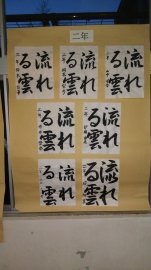 二年
流れ
る雲
流れ
る雲
流れ
る雲
流れ
る雲
流れ
る雲
流れ
る雲
流れ
る雲